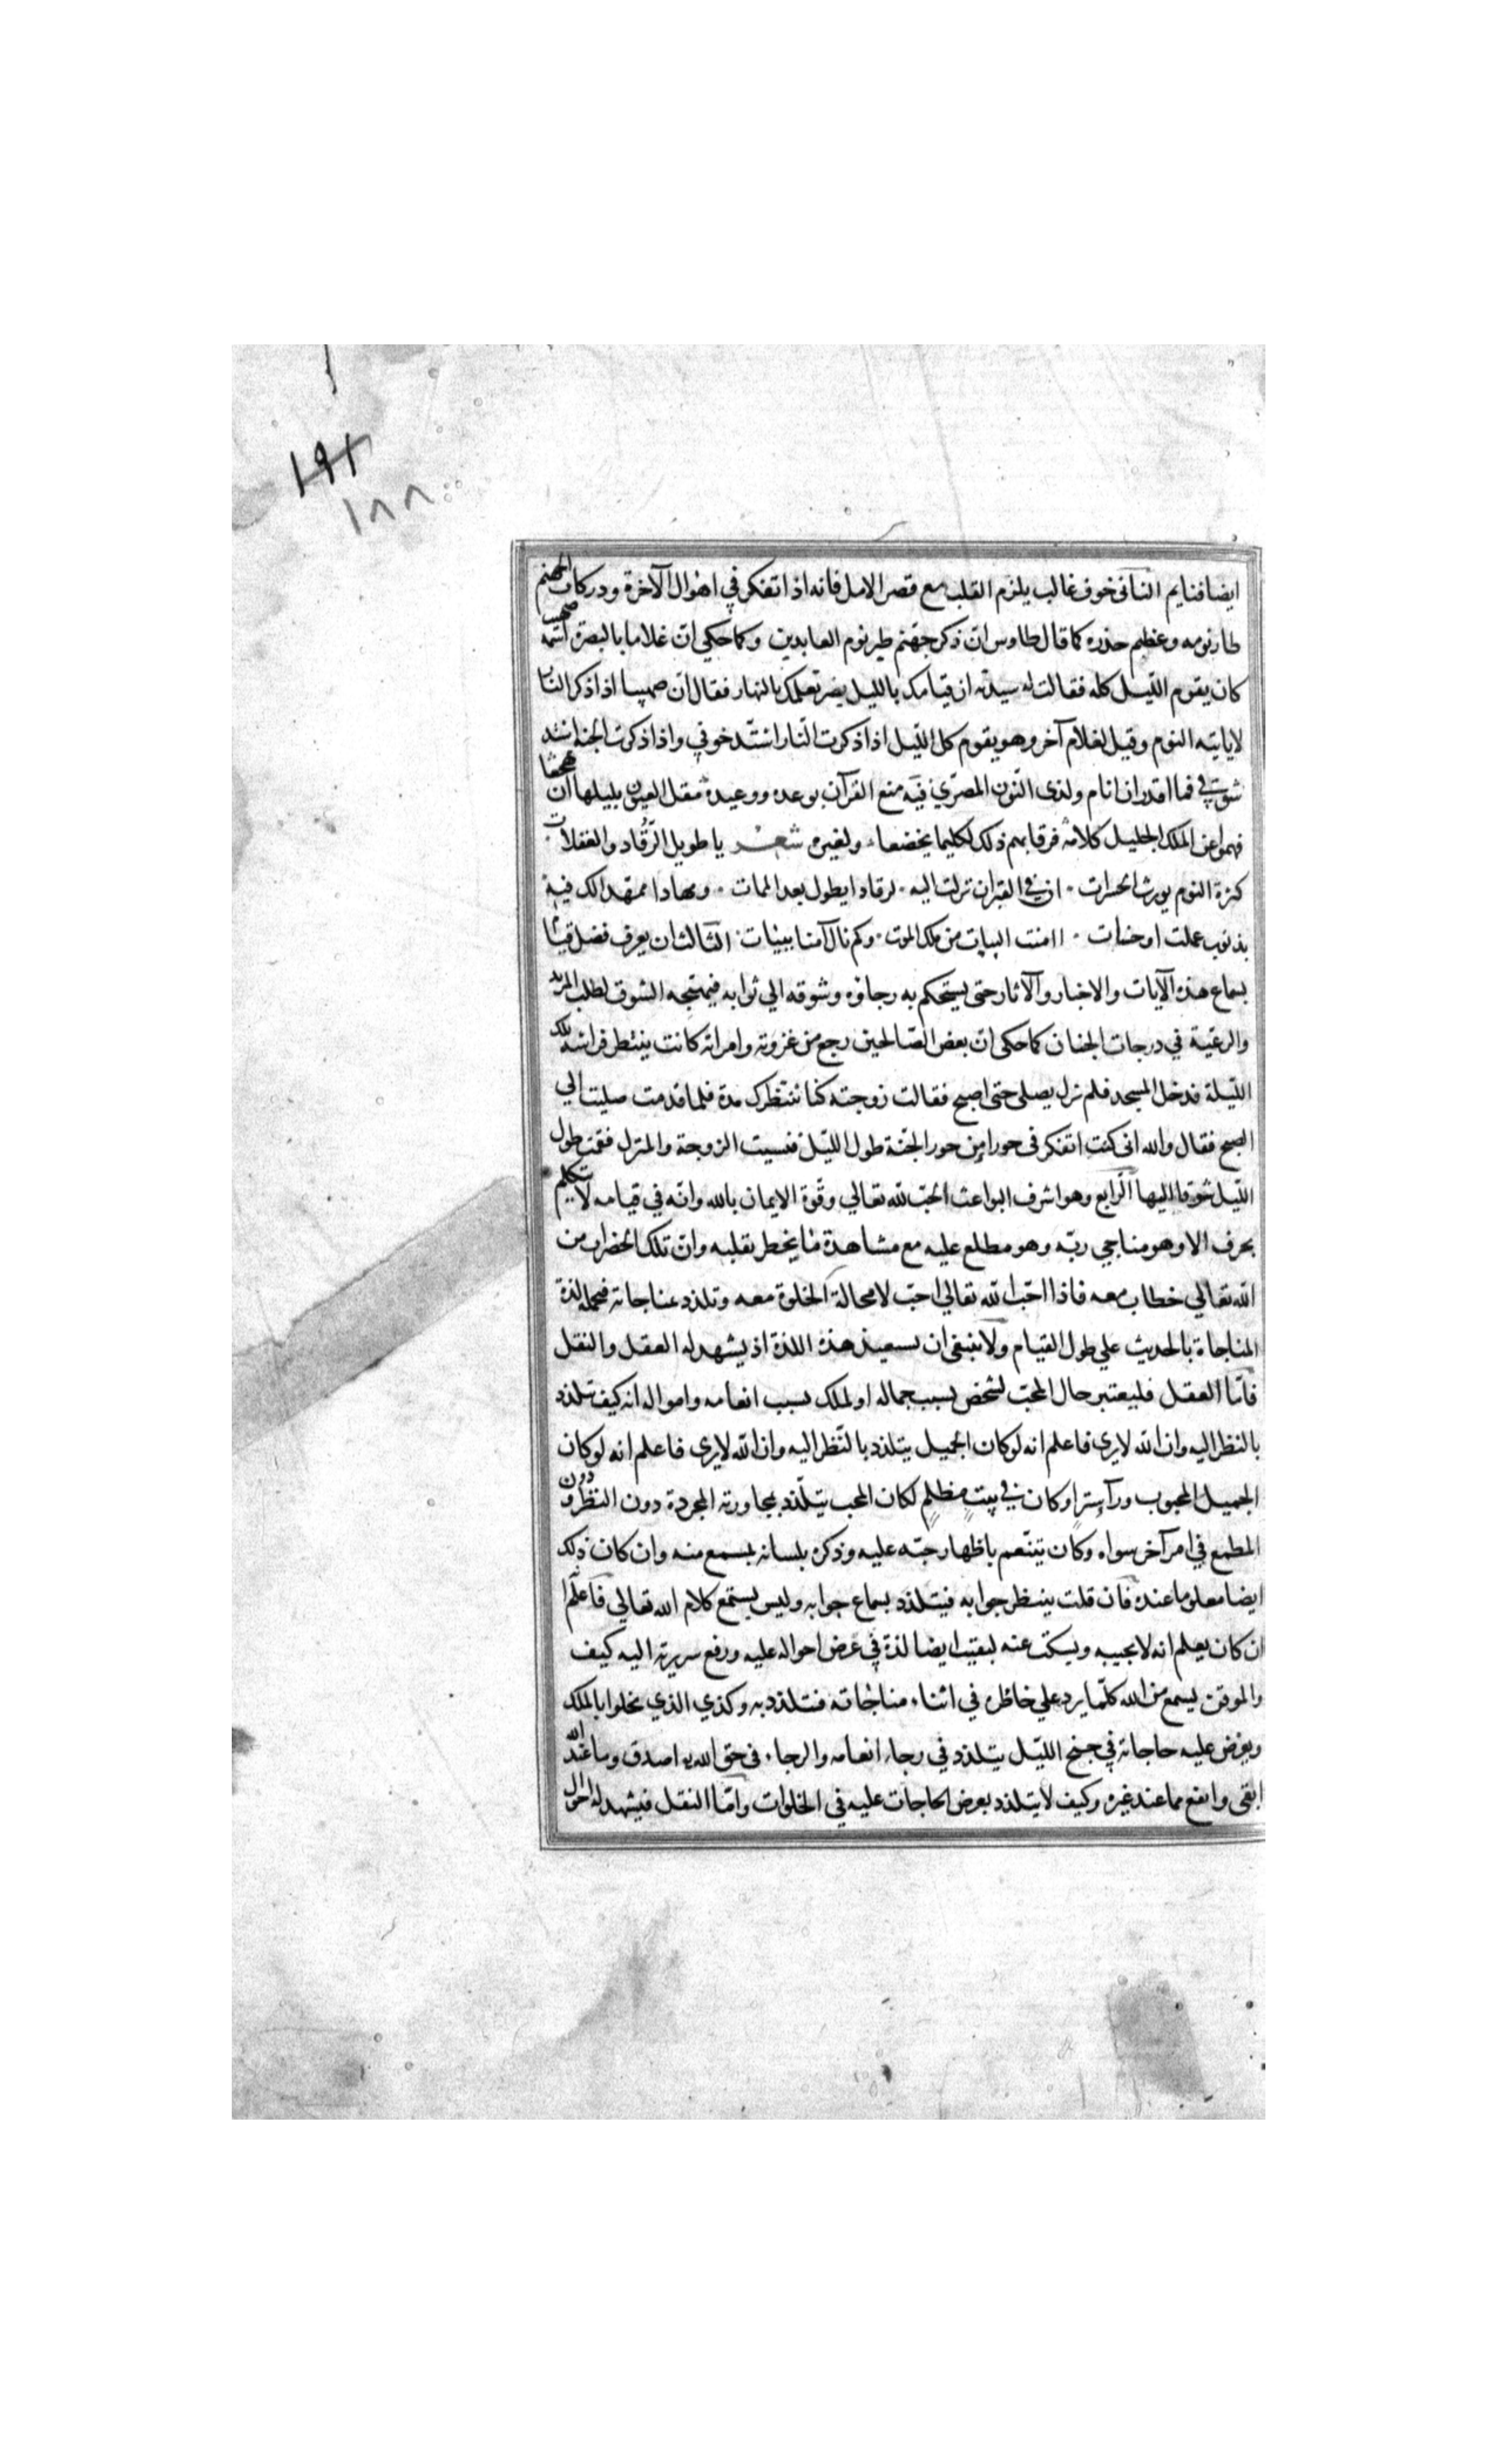 ١٩٢
١٨٨
ايضا فنايم الثاني خوف غالب يلزم القلب مع قصر الامل فانه اذا تفكر في اهوال الآخرة ودركات الجهنم
طار نومه وعظم حذره كما قال طاوس ان ذكر جهنم طير نوم العابدين وكما حكي ان غلاما بالبصرة اسمه صهيب
كان يقوم الليل كله فقالت له سيدته ان قيامك بالليل يضر بعملك بالنهار فقال ان صهيبا اذا ذكر النار
لا ياتيه النوم وقيل لغلام آخر وهو يقوم كل الليل اذا ذكرت النار اشتد خوفي واذا ذكرت الجنة اشتد
شوقي فما اقدر ان انام ولذى النون المصري فيه منع القرآن بوعده ووعيده مقل العيون بليلها ان تهجعا
فهموا عن الملك الجليل كلامه فرقابهم ذلك لكليما يخضعا ولغيره شعر يا طويل الرقاد والغفلات
كثرة النوم يورث الحسرات ان في القبر ان نزلت اليه لرقادا يطول بعد الممات ومهادا ممهدا لك فيه
بذنوب عملت او حسنات اامنت البيات من ملك الموت وكم نال آمنا ببيات الثالث ان يعرف فضل قيام
بسماع هذه الآيات والاخبار والآثار حتى يستحكم به رجاؤه وشوقه الي ثوابه فيهيجه الشوق لطلب المزيد
والرغبة في درجات الجنان كما حكى ان بعض الصالحين رجع من غزوته وامراته كانت ينتظر فراشه تلك
الليلة فدخل المسجد فلم نزل يصلي حتى اصبح فقالت زوجته كنا ننتظرك مدة فلما قدمت صليت الي
الصبح فقال والله اني كنت اتفكر في حورا من حور الجنة طول الليل فنسيت الزوجة والمنزل فقمت طول
الليل شوقا اليها الرابع وهو اشرف البواعث الحب لله تعالي وقوة الايمان بالله وانه في قيامه لا يتكلم
بحرف الا وهو مناجي ربه وهو مطلع عليه مع مشاهدة ما يخطر بقلبه وان تلك الخضرات من
الله تعالي خطاب معه فاذا احب الله تعالي احب لا محالة الخلوة معه وتلذذ بمناجاته فيحمله لذة
المناجاة بالحديث علي طول القيام ولا ينبغي ان يستبعد هذه اللذة اذ يشهد له العقل والنقل
فاما العقل فليعتبر حال المحب لشخص بسبب جماله او لملك بسبب انعامه وامواله انه كيف تلذذ
بالنظر اليه وان الله لا يرى فاعلم انه لو كان الجميل يتلذذ بالنظر اليه وان الله لا يرى فاعلم انه لو كان
الجميل المحبوب ورآ ستر او كان في بيت مظلم لكان المحب يتلذذ بمجاورته المجردة دون النظر و دون
المطمع في امر آخر سواه وكان يتنعم باظهار حبه عليه وذكره بلسانه بمسمع منه وان كان ذلك
ايضا معلوما عنده فان قلت ينتظر جوابه فيتلذذ بسماع جوابه وليس يستمع كلام الله تعالي فاعلم
ان كان يعلم انه لا يجيبه ويسكت عنه لبقيت ايضا لذة في عرض احواله عليه ورفع سريرته اليه كيف
والموقن يسمع من الله كلما يرد علي خاطره في اثناء مناجاته فتلذذ به وكذي الذي يخلوا بالملك
ويعرض عليه حاجاته في جنح الليل يتلذذ في رجاء انعامه والرجاء في حق الله اصدق وما عند الله
ابقى وانفع مما عند غيره وكيف لا يتلذذ بعرض الحاجات عليه في الخلوات واما النقل فيشهد له احوال